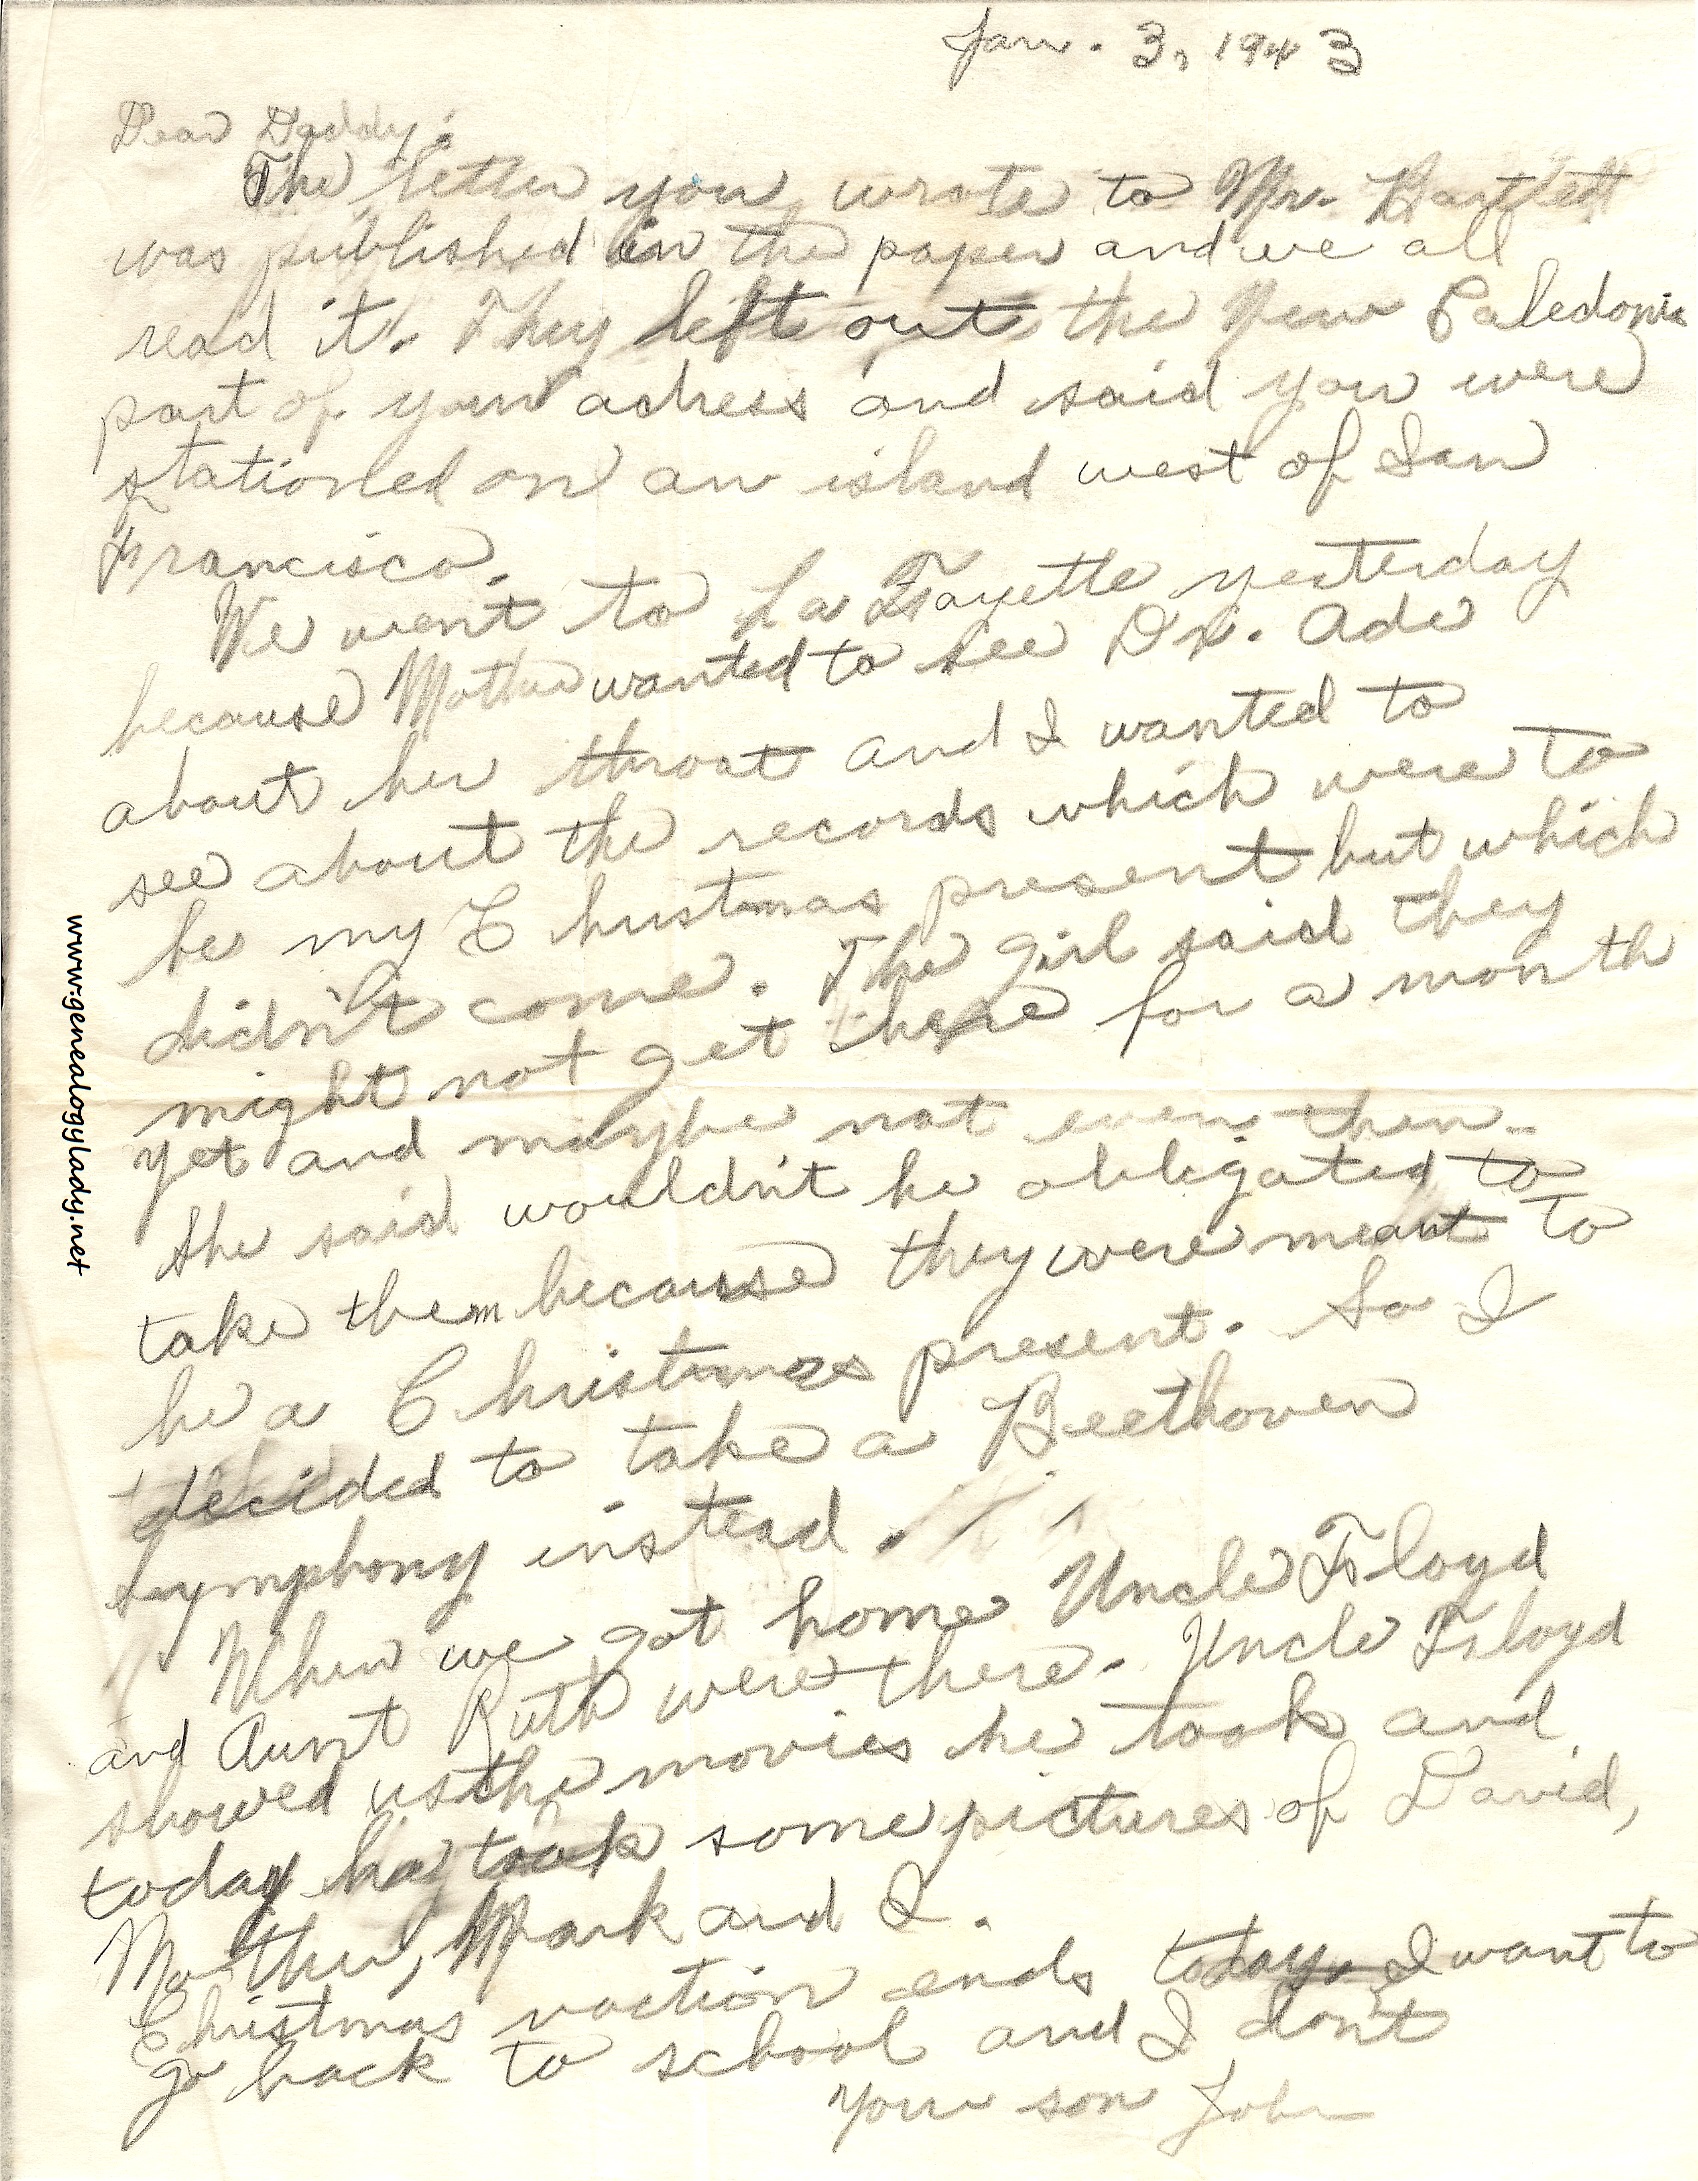 Jan. 3, 1943
Dear Daddy:
The letter you wrote to Mr. Hartlett
was published in the paper and we all
read it. They left out the New Caledonia
part of your adress and said you were
stationed on an island west of San
Francisco.
We went to La Fayette yesterday
because Mother wanted to see Dr. Ade
about her throat and I wanted to
see about the records which were to
be my Christmas present but which
didn't come. The girl said they
might not get here for a month
yet and maybe not even then.
She said wouldn't be obligated to
take them because they were meant to
be a Christmas present. So I
decided to take a Beethoven
Symphony instead.
When we got home Uncle Floyd
and Aunt Ruth were there. Uncle Floyd
showed us the movies he took and
today he took some pictures of David,
Mother, Mark and I.
Christmas vaction ends today. I want to
go back to school and I don't
Your son John
www.genealogylady.net